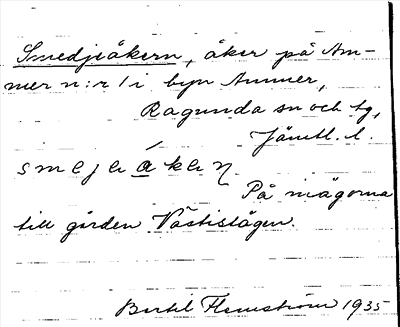 Smedjeåkern, åker på Am-
mer n:r 1 i byn Ammer,
Ragunda sn och tg,
Jämtl. l.
smejeåkeɳ
På inägorna
till gården Västistågen.
Bertil Flemström 1935